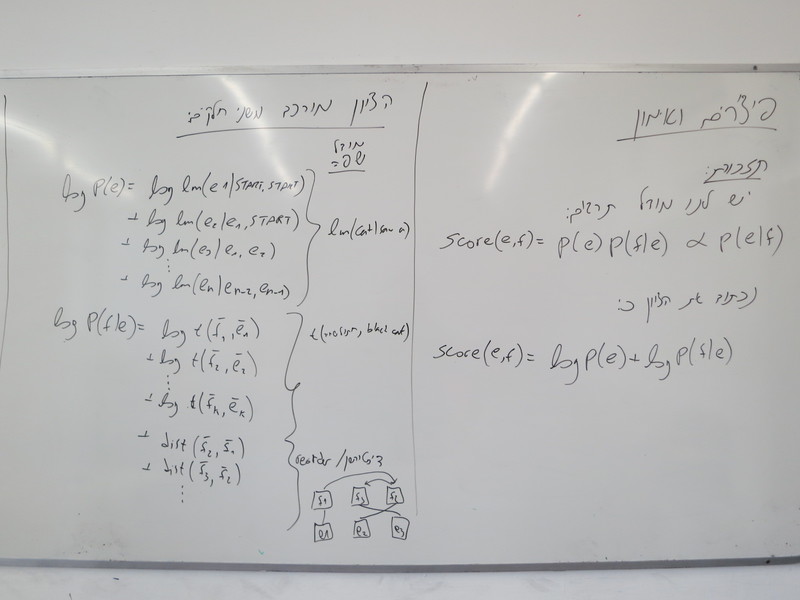 פיצ'רים ואימון
תזכורת:
יש לנו מודל תרגום:
score(e,f) = p(e) p(f|e) ∝ p(e|f)
נכתוב את הציון כ:
score(e,f) = log p(e) + log p(f|e)
הציון מורכב משני חלקים:
מודל
שפה
log p(e) = log lm(e1|START, START)
+ log lm(e2|e1, START)
+ log lm(e3|e1, e2)
⋮
+ log lm(en|en-2, en-1)
lm(cat|saw a)
log p(f|e) = log t(f̄1, ē1)
+ log t(f̄2, ē2)
⋮
+ log t(f̄k, ēk)
+ dist(f̄2, f̄1)
+ dist(f̄3, f̄2)
⋮
black cat)
reorder / דיסטורשן
f1 f3 f2
e1 e2 e3